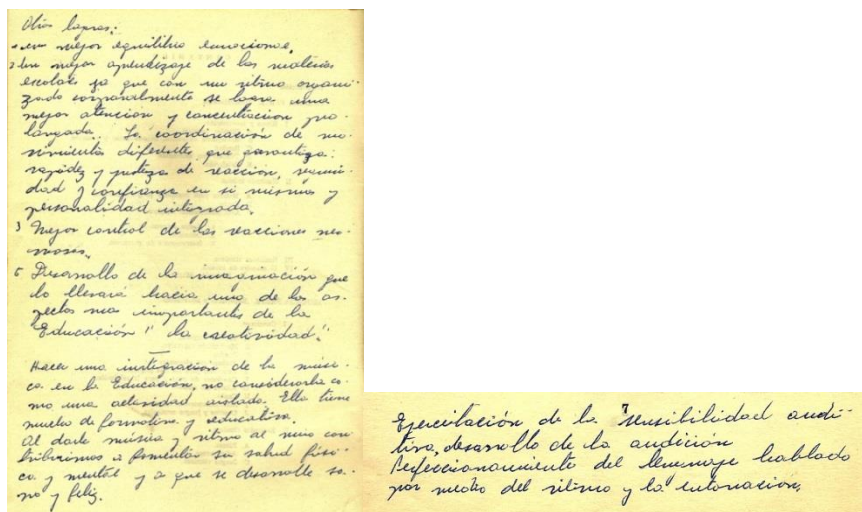 Otros logros:
un mejor equilibrio emocional.
2 Un mejor aprendizaje de las materias
escolares ya que con un ritmo organi-
zado corporalmente se logra una
mejor atención y concentración pro-
longada. La coordinación de mo-
vimientos diferentes que garantiza:
rapidez y justeza de reacción, seguri-
dad y confianza en si mismo y
personalidad integrada.
3 Mejor control de las reacciones ner-
viosas.
5 Desarrollo de la imaginación que
lo llevará hacia uno de los as-
pectos mas importantes de la
Educación "la creatividad".
Hacer una integración de la músi-
ca en la Educación, no considerarla co-
mo una actividad aislada. Ella tiene
mucho de formativa y educativa.
Al darle música y ritmo al niño con
tribuimos a fomentar su salud físi-
ca y mental y a que se desarrolle sa-
no y feliz.
Ejercitación de la sensibilidad audi-
tiva, desarrollo de la audición
Perfeccionamiento del lenguaje hablado
por medio del ritmo y la entonación.